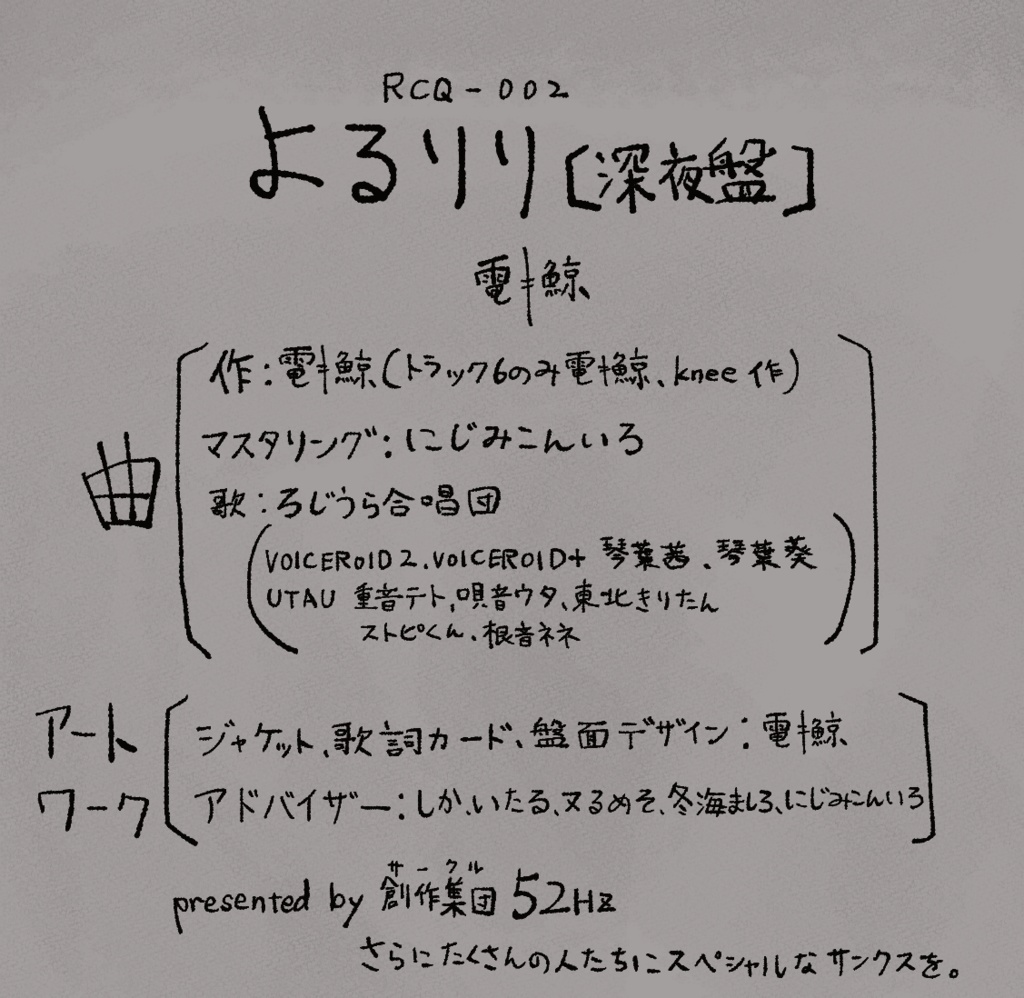 RCQ-002
よるりり[深夜盤]
電ǂ鯨
曲
作:電ǂ鯨(トラック6のみ電ǂ鯨、knee作)
マスタリング:にじみこんいろ
歌:ろじうら合唱団
(VOICEROID2.VOICEROID+ 琴葉茜、琴葉葵
UTAU 重音テト,唄音ウタ、東北きりたん
ストピくん、根音ネネ)
アートワーク
ジャケット、歌詞カード、盤面デザイン:電ǂ鯨
アドバイザー:しか、いたる、ヌるめそ、冬海ましろ、にじみこんいろ
サークル
presented by 創作集団 52Hz
さらにたくさんの人たちにスペシャルなサンクスを。